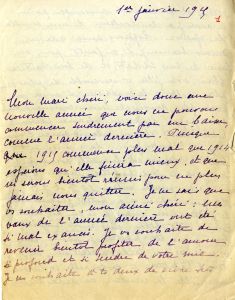 1er janvier 1915
Mon mari chéri, voici donc une
nouvelle année que nous ne pouvons
commencer tendrement par un baiser
comme l'année dernière. Puisque
que 1915 commence plus mal que 1914
espérons qu'elle finira mieux, et que
nous serons bientôt réunis pour ne plus
jamais nous quitter. Je ne sais que
vous souhaiter, mon aimé chéri ; mes
vœux de l'année dernière ont été
si mal exaucés. Je vous souhaite de
revenir bientôt profiter de l'amour
si profond et si tendre de votre mie.
Je souhaite à tous deux de